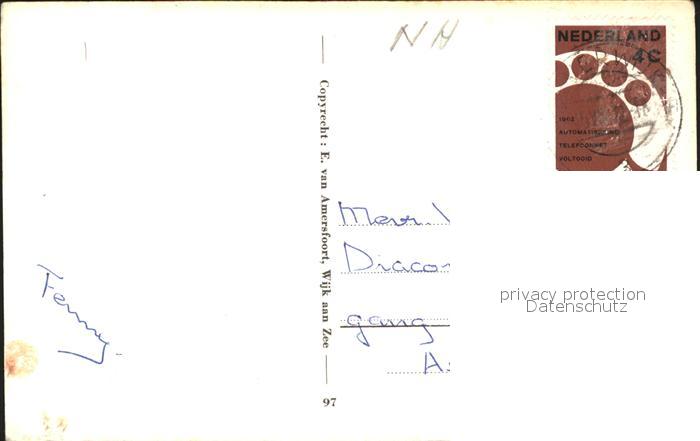 NH
NEDERLAND
4C
1962
AUTOMATISERING
TELEFOONNET
VOLTOOID
Copyrecht: E. van Amersfoort, Wijk aan Zee
Mevr.
Diaco
gang
A
Fenny
privacy protection
Datenschutz
97